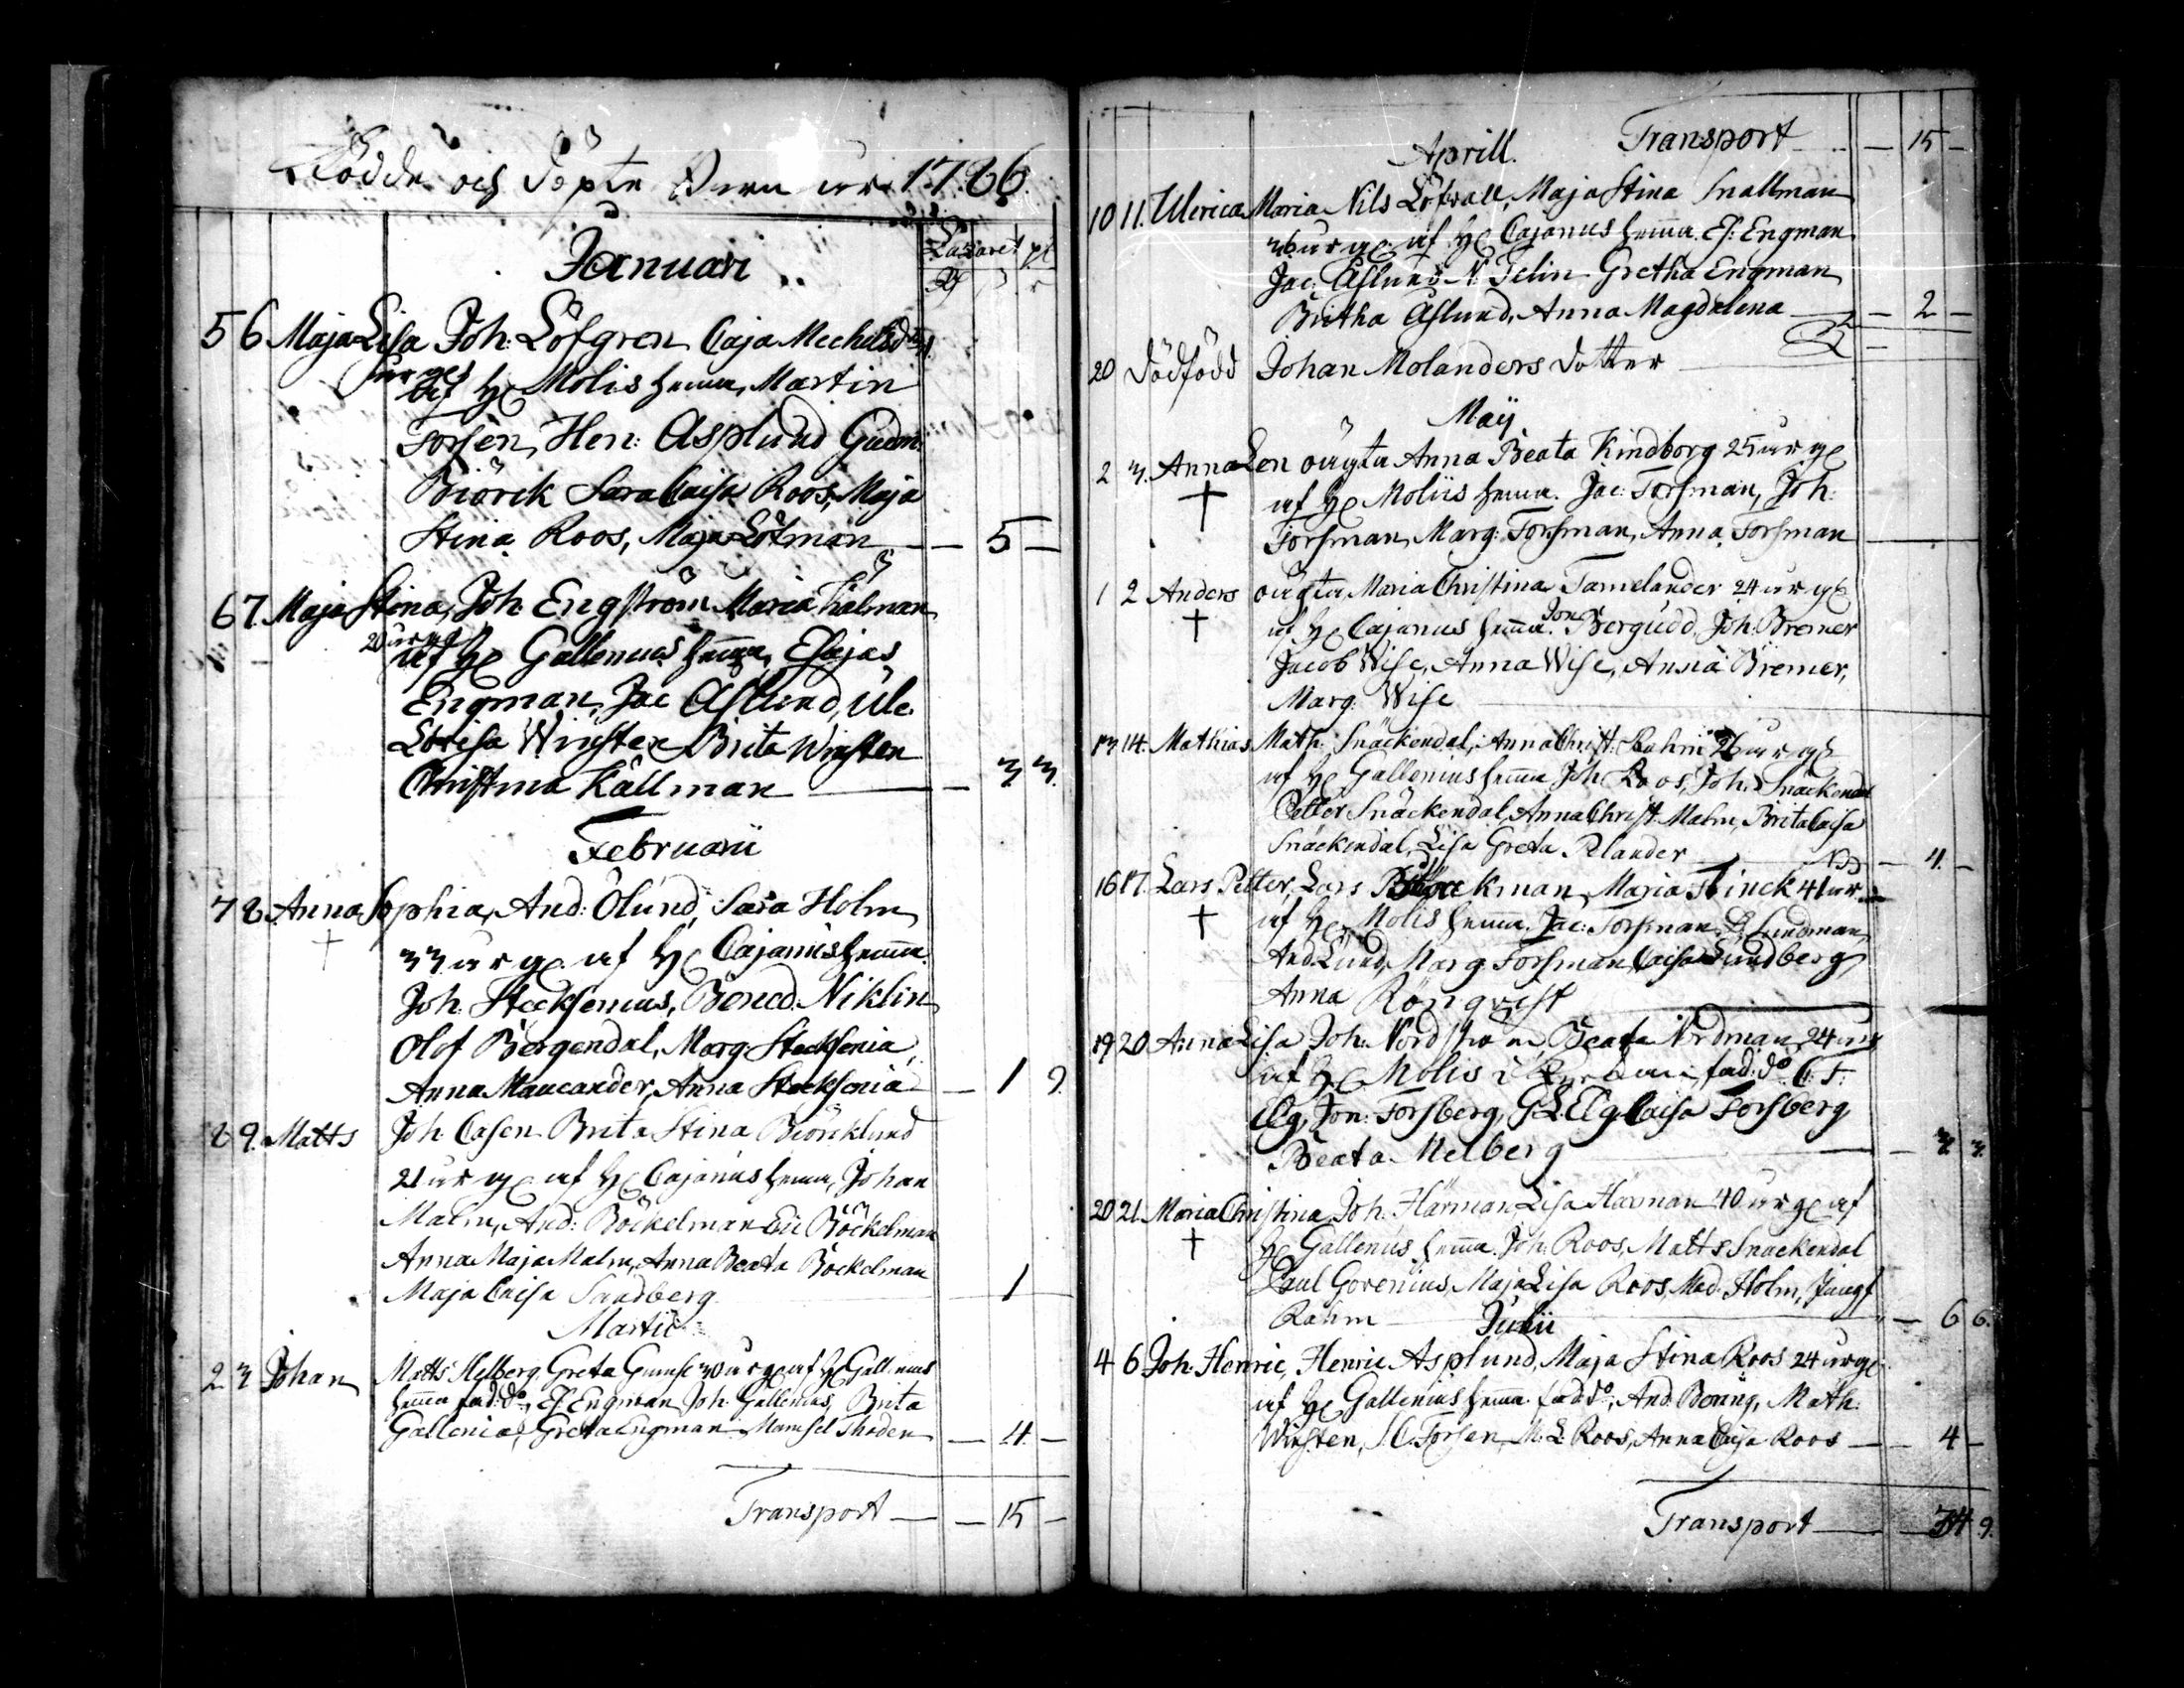 Födde och Döpte Barn år 1786.
Januari
Lazaret pl
5 6 Maja Lisa Joh: Löfgren Caja Mechelsdr
af H Molis hemma, Martin
Forsen, Hen: Asplund Gudm:
Biörck Sara Caisa Roos, Maja
Stina Roos, Maja Lötman — 5 —
6 7. Maja Stina, Joh. Engström Maria Kälman
20 år gl
af H Gallenius hemma, Esajas
Engman, Jac Åslund, Ule.
Lovisa Winsten Brita Winsten
Christina Källman — 3 3.
Februarii
7 8. Anna Sophia, And: Ölund, Sara Holm
†
33 år gl. af H Cajanus hemma.
Joh. Stecksenius, Bened. Niklin
Olof Bergendal, Marg: Stecksenia,
Anna Maucander, Anna Stecksenia — 1 9.
8 9. Matts Joh. Casen Brita Stina Biörcklund
21 år gl af H Cajanus hemma, Johan
Malm, And: Böckelman Eric Böckelman
Anna Maja Malm, Anna Beata Böckelman
Maja Caisa Sandberg 1
Martii
2 3 Johan Matts Melberg, Greta Gumse 30 år gl af H Gallenius
hemma fad: do, Es Engman Joh. Gallenius, Brita
Gallenia, Greta Engman Mamsel Thoden — 4 —
Transport — 15 —
Aprill. Transport — 15 —
10 11. Ulerica Maria Nils Löfvall, Maja Stina Snallman
36 år gl. af H Cajanus hemma. Es: Engman
Jac: Åslund N. Telin Gretha Engman
Britha Åslund, Anna Magdalena — 2 —
20 Dödfödd Johan Molanders dotter
Maij
2 3. Anna Len oägta Anna Beata Kindborg 25 år gl
† af H Moliis hemma. Jac: Forsman, Joh:
Forsman, Marg: Forsman, Anna Forsman
1 2 Anders oägta Maria Christina Tamelander 24 år gl
† af H Cajanus hemma. Jon Bergudd, Joh: Bremer
Jacob Wise, Anna Wise, Anna Bremer,
Marg: Wise
13 14. Mathias Math: Snäckendal, Anna Christ: Rahm 26 år gl
af H Gallenius hemma Joh Roos, Joh. Snäckendal
Petter Snäckendal, Anna Christ: Malm, Brita Caisa
Snäckendal, Lisa Greta Pelander — 4. —
16 17. Lars Petter, Lars Böckman, Maria Finck 41 år
† af H Molis hemma. Jac: Forsman, Lundman,
And. Lund, Marg Forsman Caisa Lundberg
Anna Rönqvist
19 20 Anna Lisa Joh: Nordström, Beata Nordman, 24 år
af H Molis i fad: do C. F:
Elg, Jon: Forsberg, G. L. Elg Caisa Forsberg
Beata Melberg — 3. 3.
20 21. Maria Christina, Joh. Härman Lisa Harman 40 år gl af
† H Gallenius hemma. Joh: Roos, Matts Snäckendal
Paul Govenius, Maja Lisa Roos, Mad: Holm, Jungf
Rahm — 6 6.
Julii
4 6 Joh. Henric, Henric Asplund, Maja Stina Roos 24 år gl.
af H Gallenius hemma fad do, And: Boring, Math:
Winsten, J. C. Forsen, M: L Roos, Anna Caisa Roos — 4 —
Transport — 34 9.